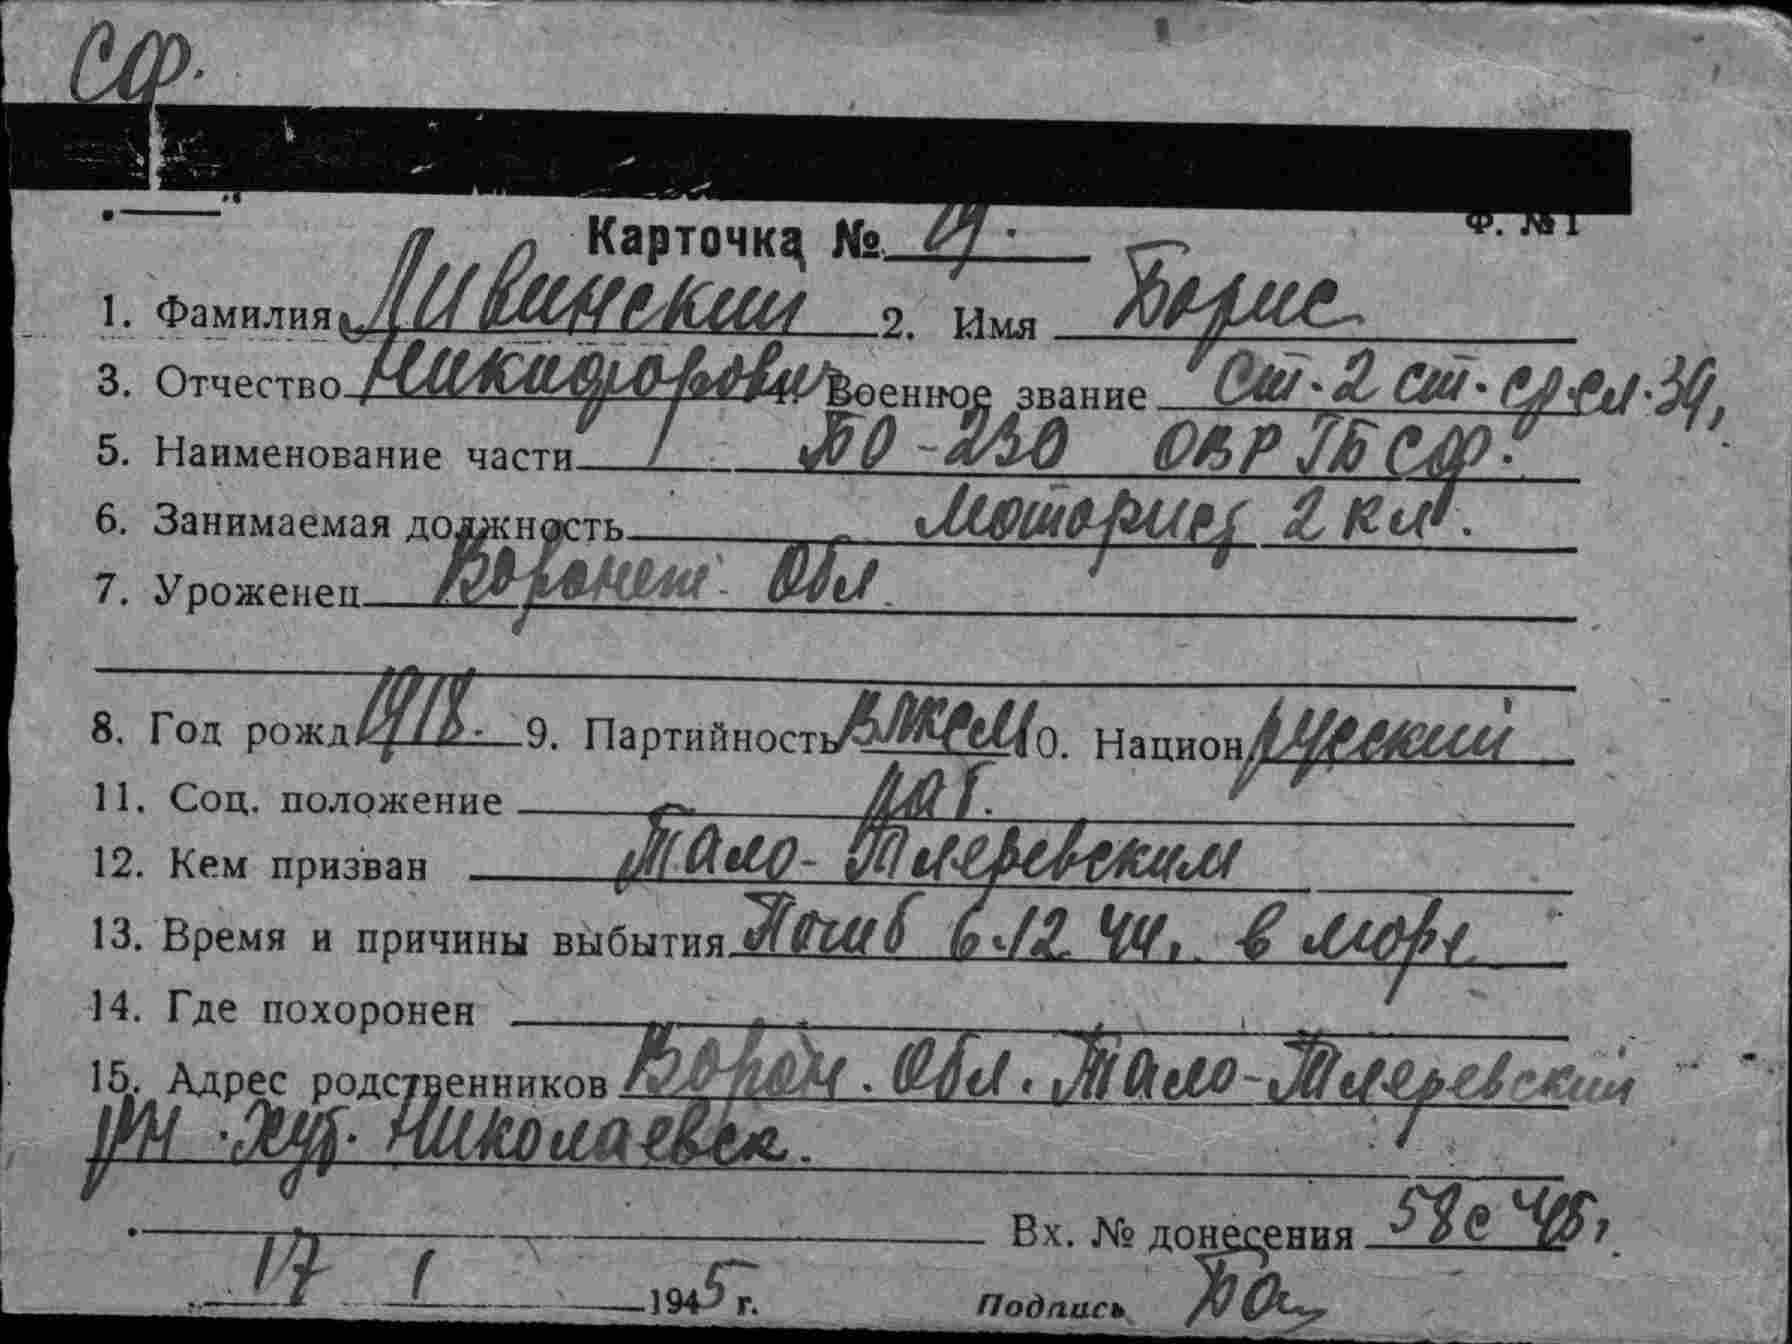 СФ.
Ф. № 1
Карточка № 19.
1. Фамилия Ливинский 2. Имя Борис
3. Отчество Никифорович 4. Военное звание Ст. 2 ст. ср.сл. 39,
5. Наименование части БО-230 ОВР ГБ СФ.
6. Занимаемая должность Моторист 2 кл.
7. Уроженец Воронеж. Обл.
8. Год рожд 1918. 9. Партийность ВЛКСМ 10. Национ русский
11. Соц. положение раб.
12. Кем призван Тало-Тлеревским
13. Время и причины выбытия Погиб 6.12.44г. в море
14. Где похоронен
15. Адрес родственников Ворон. Обл. Тало-Тлеревский
рн. Хут. Николаевск.
Вх. № донесения 58с 45г.
17 1 1945 г. Подпись